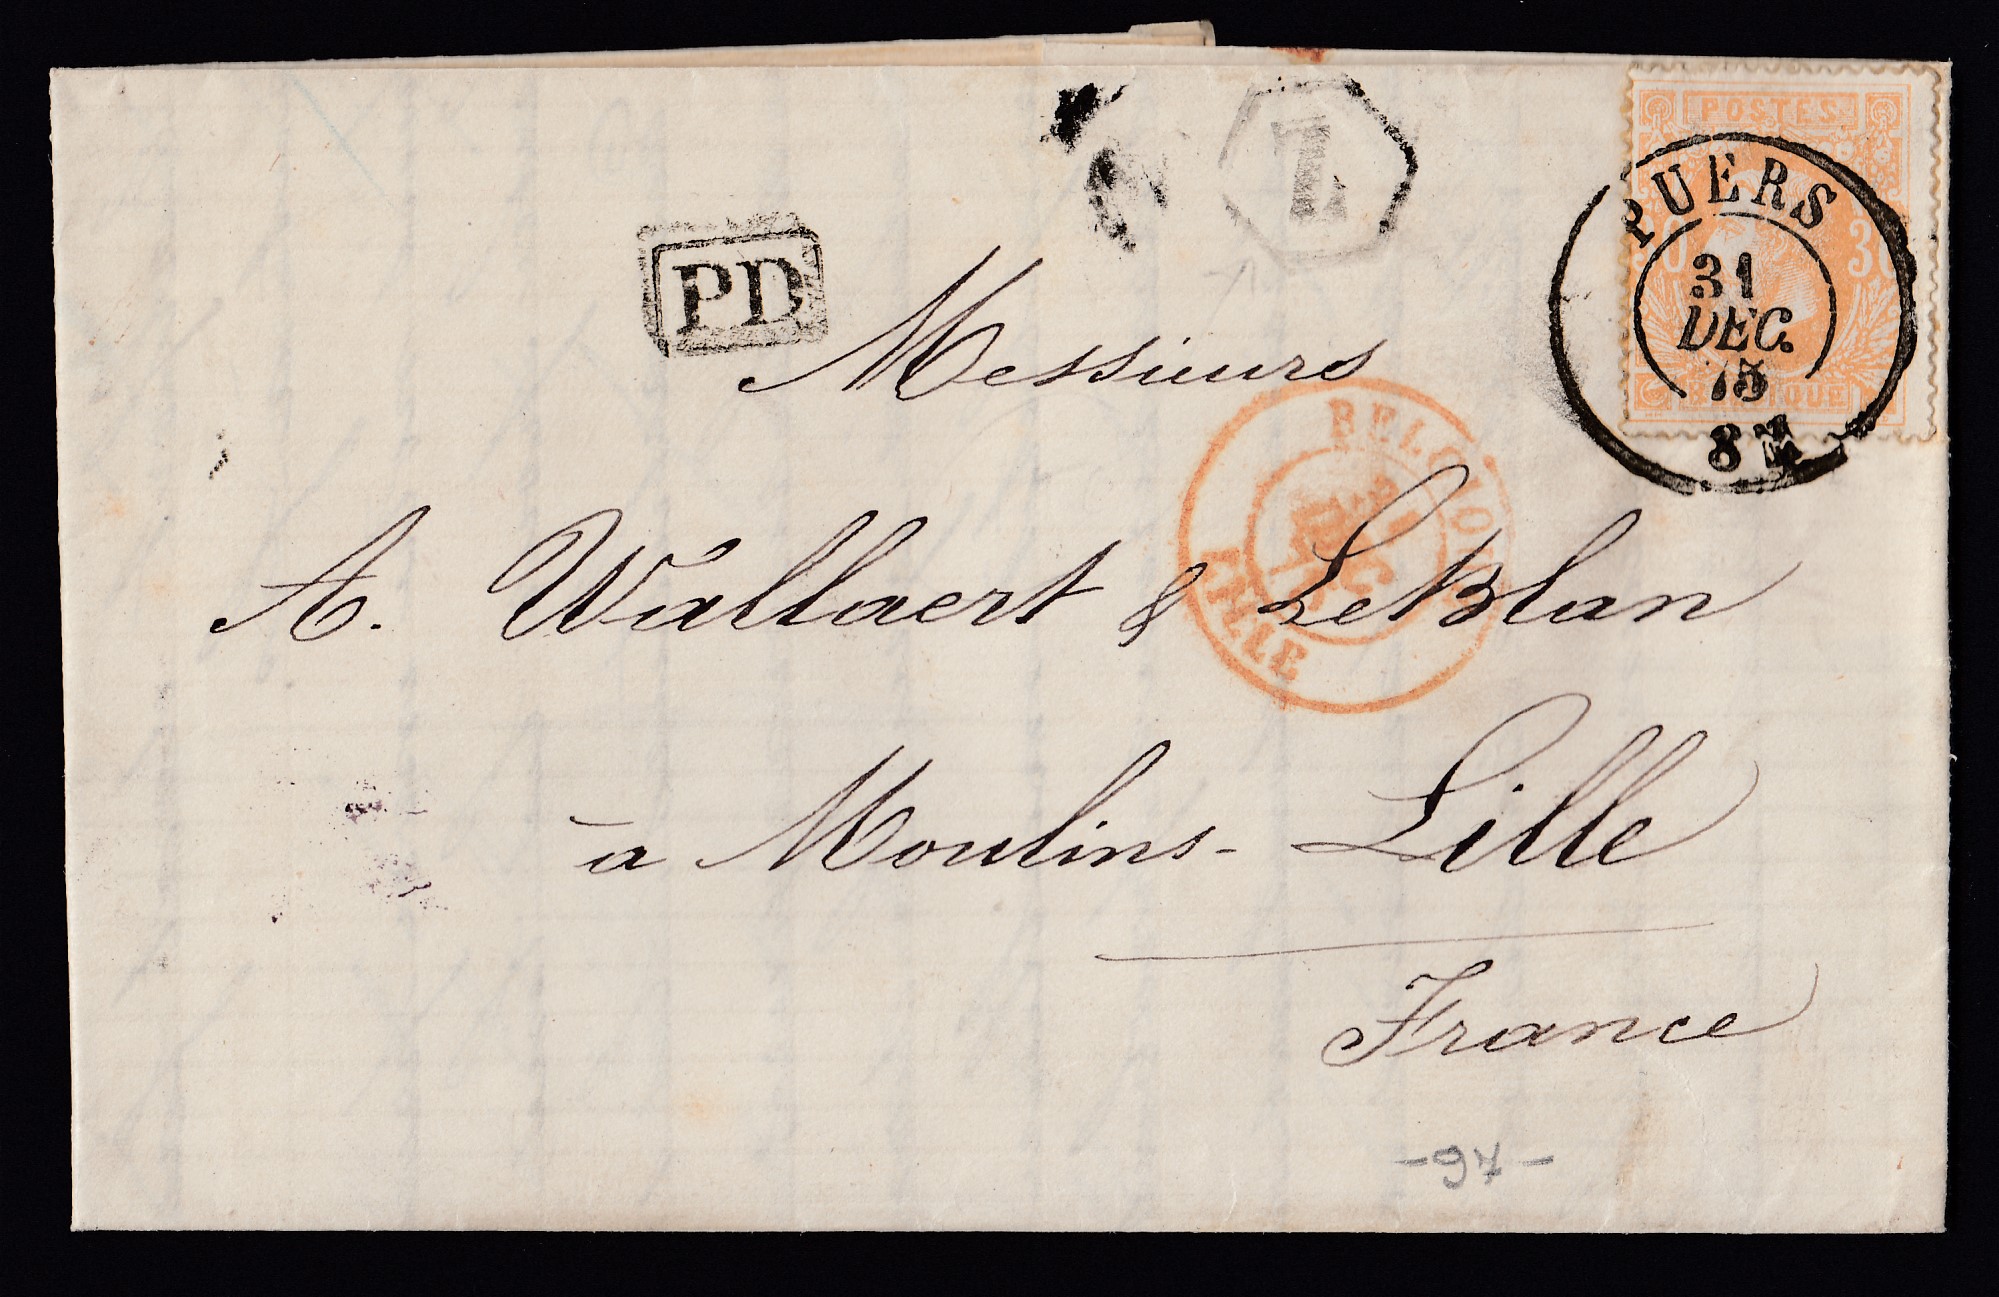 POSTES
PUERS
31
DEC.
75
8 M
30
BELGIQUE
L
PD
Messieurs
A. Wallaert & LeBlan
BELGIQUE
31
DEC
LILLE
à Moulins-Lille
France
-97-